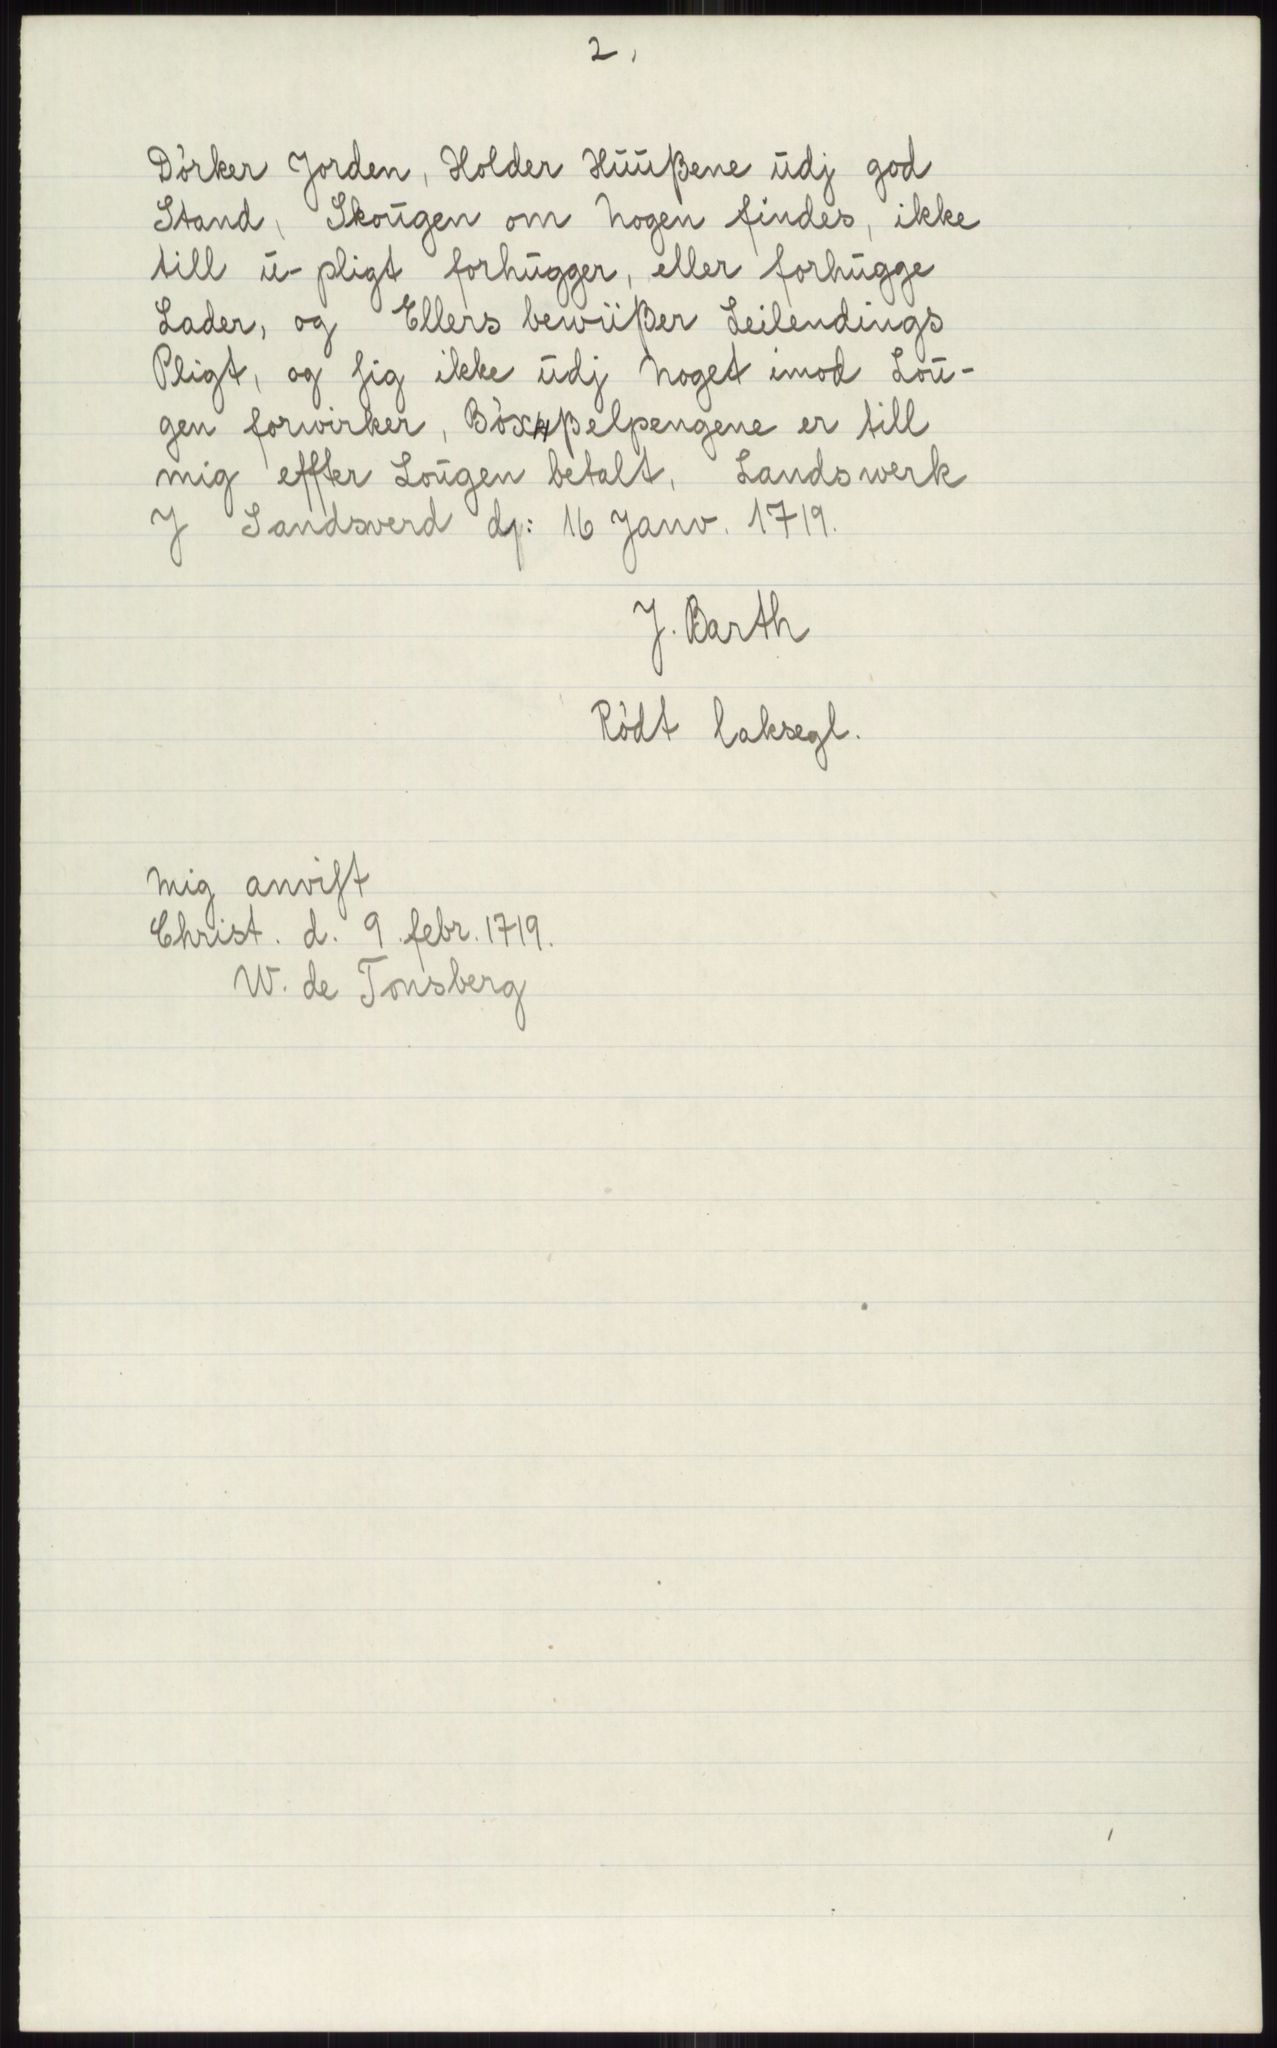 2.
Dörker Jorden, Holder Hūūßene ūdj god
Stand, Skoūgen om Nogen findes, ikke
till ū-pligt forhūgger, eller forhūgge
Lader, og Ellers bewüßer Leilendings
Pligt, og sig ikke ūdj Noget imod Loū-
gen forwirker, Böxßelpengene er till
mig effter Loūgen betalt, Landswerk
J Sandsverd dȷ: 16 Janv. 1719.
J. Barth
Rödt laksegl.
Mig anvist
Christ. d. 9. febr. 1719.
W. de Tonsberg